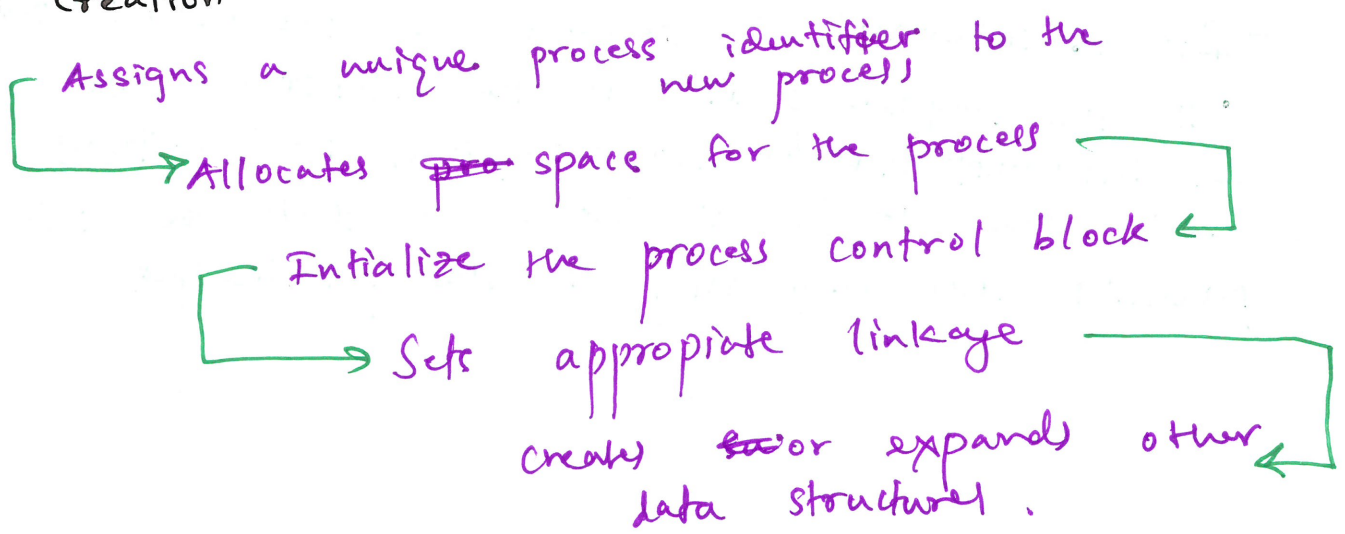 creation
Assigns a unique process identifier to the
new process
Allocates space for the process
Intialize the process control block
Sets appropiate linkage
creates or expands other
data structures.